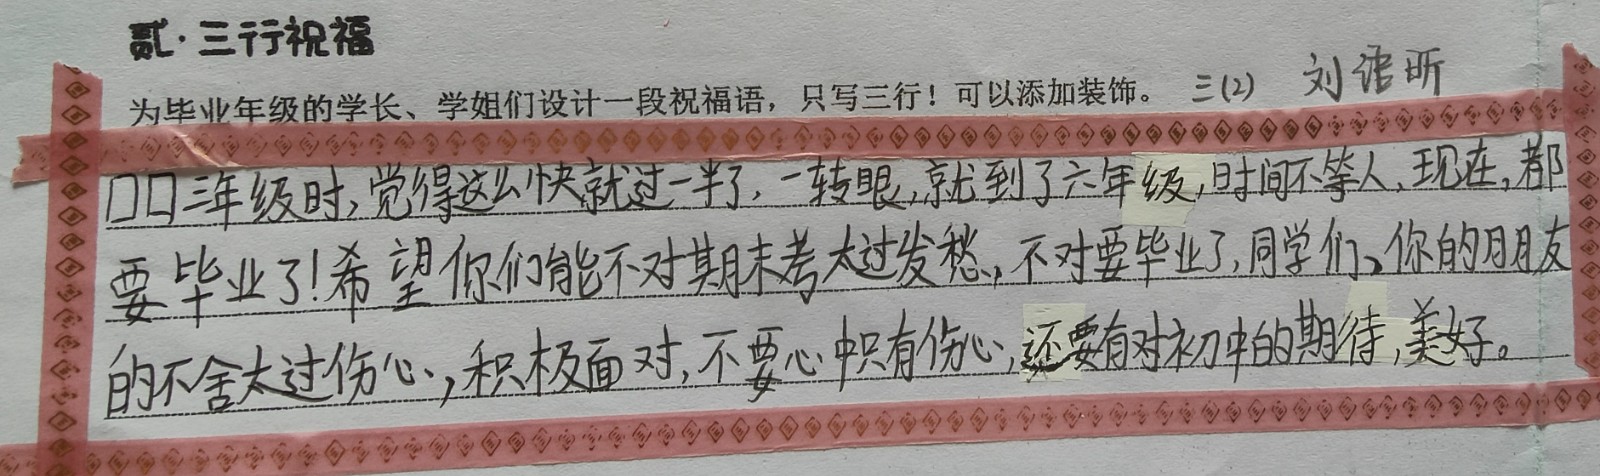 贰·三行祝福
为毕业年级的学长、学姐们设计一段祝福语，只写三行！可以添加装饰。 三(2) 刘语昕
口口三年级时,觉得这么快就过一半了,一转眼,就到了六年级,时间不等人,现在,都
要毕业了!希望你们能不对期末考太过发愁,不对要毕业了,同学们、你的朋友
的不舍太过伤心,积极面对,不要心中只有伤心,还要有对初中的期待,美好。